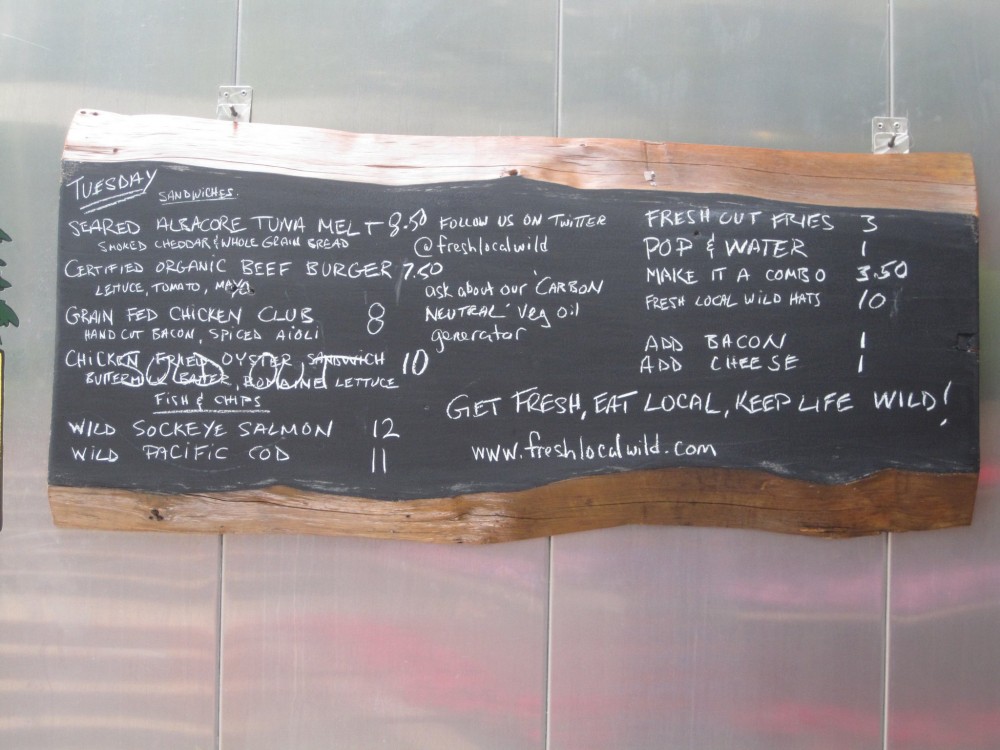 TUESDAY
SANDWICHES.
SEARED ALBACORE TUNA MELT 8.50
SMOKED CHEDDAR & WHOLE GRAIN BREAD
CERTIFIED ORGANIC BEEF BURGER 7.50
LETTUCE, TOMATO, MAYO
GRAIN FED CHICKEN CLUB 8
HAND CUT BACON, SPICED AIOLI
CHICKEN FRIED OYSTER SANDWICH 10
SOLD OUT
BUTTERMILK BATTER, ROMAINE LETTUCE
FISH & CHIPS
WILD SOCKEYE SALMON 12
WILD PACIFIC COD 11
FOLLOW US ON TWITTER
@freshlocalwild
ask about our 'CARBON
NEUTRAL' Veg oil
generator
FRESH CUT FRIES 3
POP & WATER 1
MAKE IT A COMBO 3.50
FRESH LOCAL WILD HATS 10
ADD BACON 1
ADD CHEESE 1
GET FRESH, EAT LOCAL, KEEP LIFE WILD!
www.freshlocalwild.com